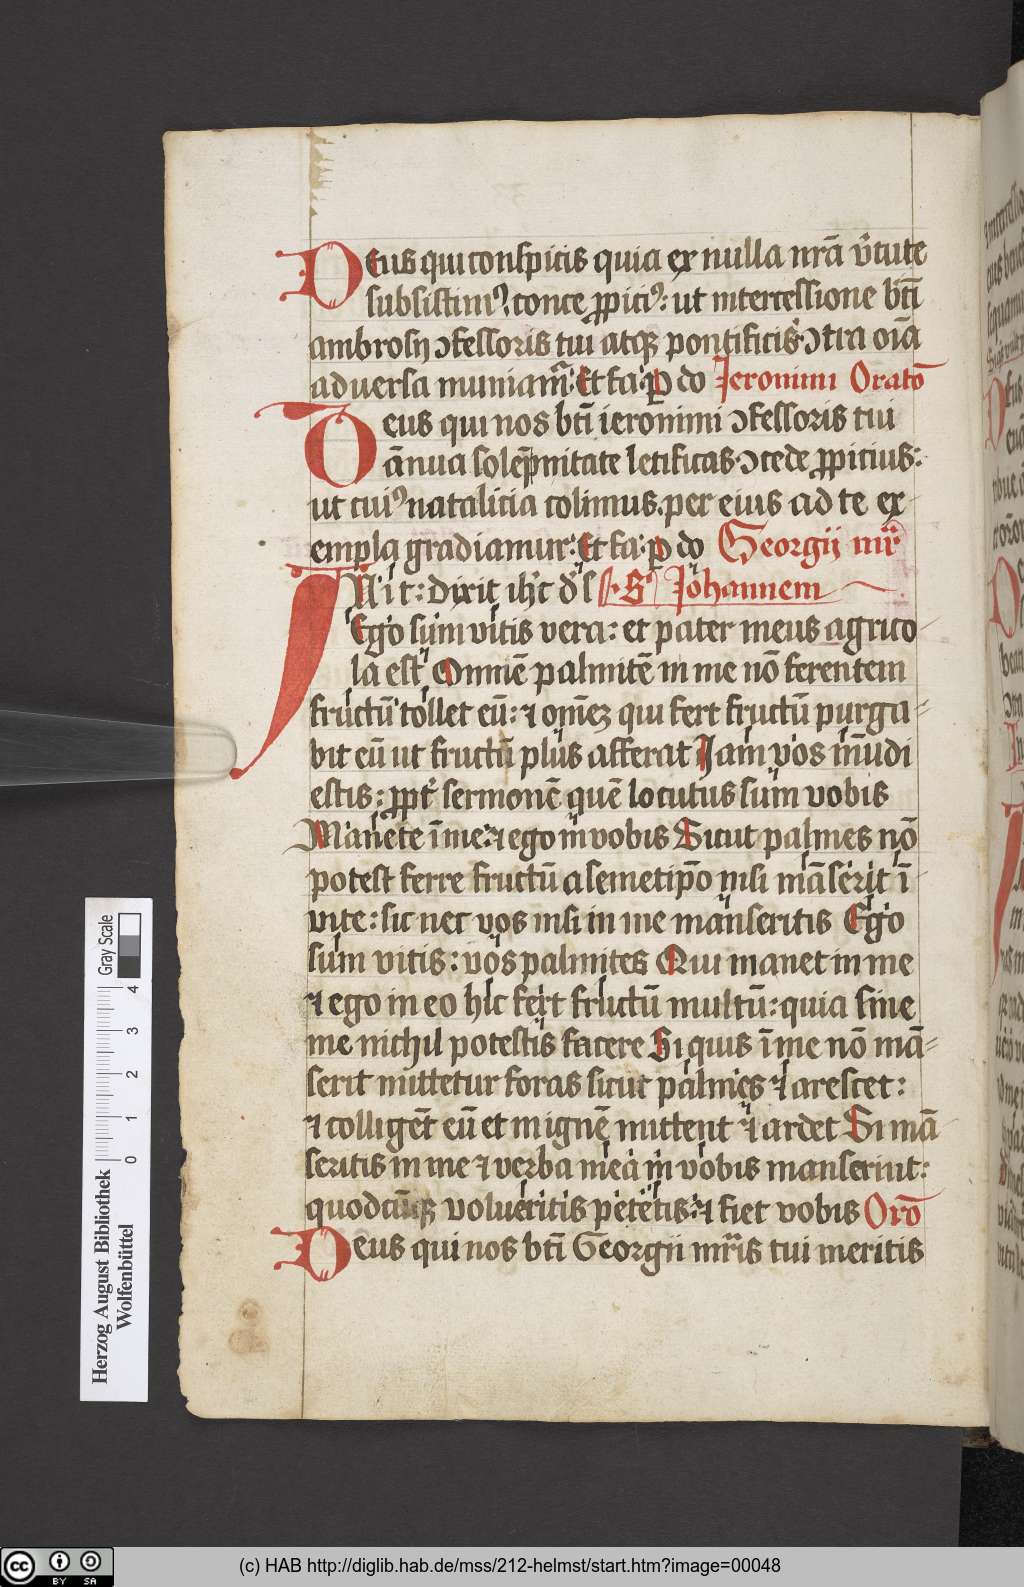 Deus qui conspicis quia ex nulla nr̄a v̄tute
subsistimꝰ, conce p̱piciꝰ: ut intercessione bt̄i
ambrosij ↄfessoris tui atqꝫ pontificis ↄtra oīa
adversa muniamr̄: Et fa: ꝑ do Jeronimi Oratō
Deus qui nos bt̄i ieronimi ↄfessoris tui
ānua solēpnitate letificas ↄcede ꝓpicius:
ut cuiꝰ natalicia colimus. per eius ad te ex
empla gradiamur: Et fa: ꝑ do Georgij mr̄
In it: dixit ih̄c d̄s S Johannem
Ego sum vitis vera: et pater meus agrico
la est Omnē palmitē in me nō ferentem
fructū tollet eū: ⁊ om̄eꝫ qui fert fructū purga
bit eū ut fructū plus afferat Jam vos mūdi
estis: ꝓpt̄ sermonē quē locutus sum vobis
Manete ī me: ⁊ ego in vobis Sicut palmes nō
potest ferre fructū a semetip̄o nisi māserit ī
vite: sic nec vos nisi in me manseritis Ego
sum vitis: vos palmites Qui manet in me
⁊ ego in eo hic fert fructū multū: quia sine
me nichil potestis facere Si quis ī me nō mā
serit mittetur foras sicut palmes ⁊ arescet:
⁊ colligēt eū et in ignē mittent ⁊ ardet Si mā
seritis in me ⁊ verba mea in vobis manserint:
quodcūqꝫ volueritis petetis: ⁊ fiet vobis Orō
Deus qui nos bt̄i Georgii mr̄is tui meritis
Herzog August Bibliothek
Wolfenbüttel
0 1 2 3 4
Gray Scale
cc BY SA
(c) HAB http://diglib.hab.de/mss/212-helmst/start.htm?image=00048